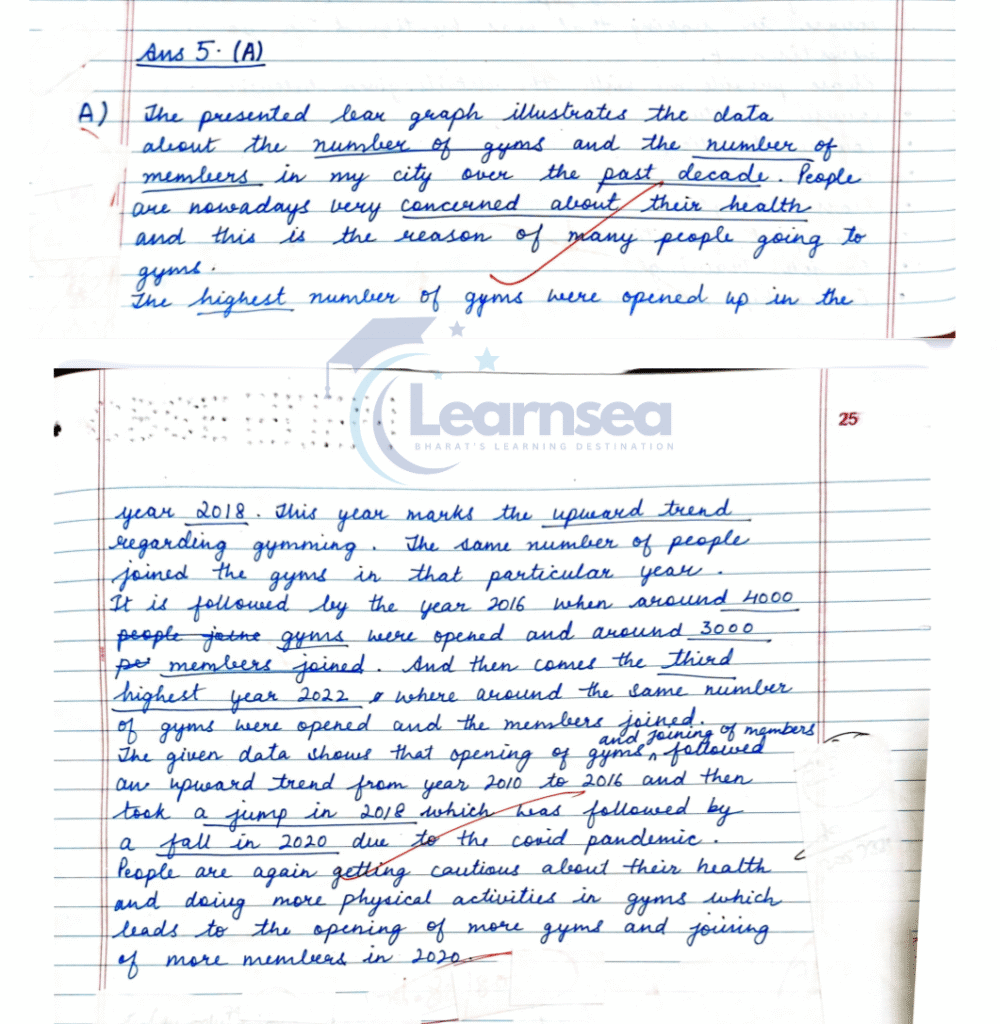 Ans 5. (A)
A) The presented bar graph illustrates the data
about the number of gyms and the number of
members in my city over the past decade. People
are nowadays very concerned about their health
and this is the reason of many people going to
gyms.
The highest number of gyms were opened up in the
Learnsea
BHARAT'S LEARNING DESTINATION
25
year 2018. This year marks the upward trend
regarding gymming. The same number of people
joined the gyms in that particular year.
It is followed by the year 2016 when around 4000
people joine gyms were opened and around 3000
pe members joined. And then comes the third
highest year 2022 where around the same number
of gyms were opened and the members joined.
and joining of members
The given data shows that opening of gyms ^ followed
an upward trend from year 2010 to 2016 and then
took a jump in 2018 which was followed by
a fall in 2020 due to the covid pandemic.
People are again getting cautious about their health
and doing more physical activities in gyms which
leads to the opening of more gyms and joining
of more members in 2020.